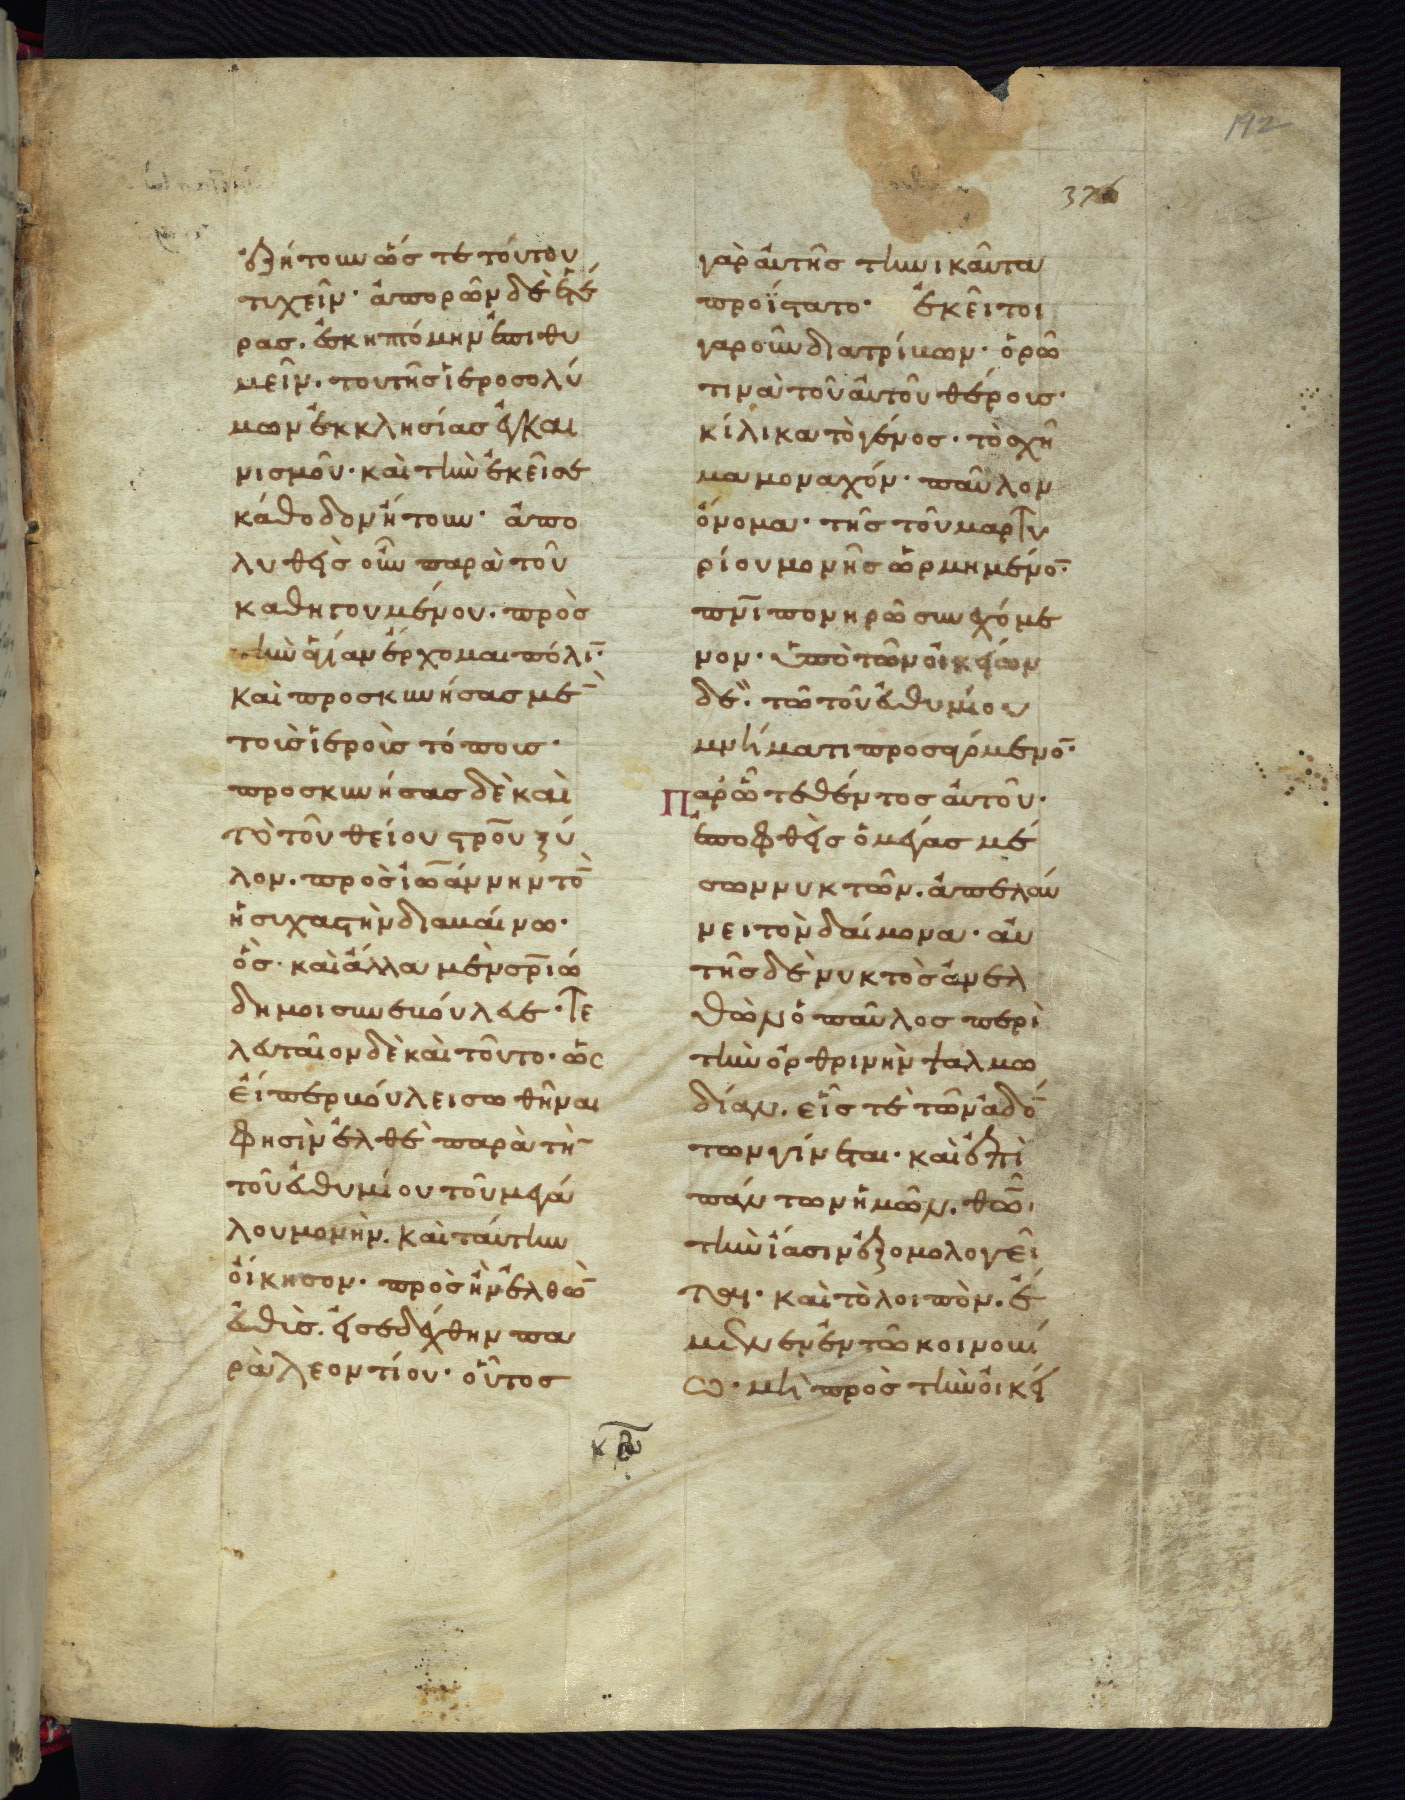 192
376
ἐζήτουν ὥστε τούτου
τυχεῖν· ἀπορῶν δὲ ἑτέ
ρας. ἐσκηπτόμην ἐπιθυ
μεῖν. τοῦ τῆς ἱεροσολύ
μων ἐκκλησίας ἐγκαι
νισμοῦ· καὶ τὴν ἐκεῖσε
κάθοδον ᾔτουν· ἀπο
λυθεὶς οὖν παρὰ τοῦ
καθηγουμένου. πρὸς
τὴν ἁγίαν ἔρχομαι πόλι̅·
καὶ προσκυνήσας με̅
τοις ἱεροῖς τόποις·
προσκυνήσας δὲ καὶ
τὸ τοῦ θείου σρ̅ου ξύ
λον. πρὸς ἰωάννην το̅
ἡσυχαστὴν διαβαίνω·
ὃς· καὶ ἄλλα μὲν σρ̅ιώ
δη μοι συνεβούλευε· τε
λευταῖον δὲ καὶ τοῦτο· ὡς
εἴπερ βούλει σωθῆναι
φησὶν ἐλθὲ παρὰ τὴ̅
τοῦ εὐθυμίου τοῦ μεγά
λου μονὴν. καὶ ταύτην
οἴκησον· πρὸς ἣν ἐλθὼ̅
εὐθὺς. εἰσεδέχθην πα
ρὰ λεοντίου· οὗτος
γὰρ αὐτῆς τηνικαῦτα
προΐστατο· ἐκεῖ τοι
γαροῦν διατρίβων· ὁρῶ
τινὰ τοῦ αὐτοῦ θέρους·
κίλικα τὸ γένος· τὸ σχῆ
μα μοναχόν· παῦλον
ὄνομα· τῆς τοῦ μαρτυ
ρίου μονῆς ὡρμημένο̅·
πν̅ι πονηρῶ συνεχόμε
νον· ὑπὸ τῶν οἰκείων
δὲ· τῶ τοῦ εὐθυμίου
μνήματι προσφερόμενο̅·
Παρ ὧ τεθέντος αὐτοῦ·
ἐποφθεὶς ὁ μέγας μέ
σων νυκτῶν. ἀπελαύ
νει τὸν δαίμονα· αὐ
τῆς δὲ νυκτὸς ἀνελ
θὼν ὁ παῦλος περὶ
τὴν ὀρθρινὴν ψαλμω
δίαν. εἷς τὲ τῶν ἀδό̅
των γίνεται· καὶ ἐπὶ
πάντων ἡμῶν. θω̅ι
τὴν ἴασιν ἐξομολογεῖ
ται· καὶ τὸ λοιπὸν. ἔ
μεινεν ἐν τῶ κοινοβί
ω· μὴ πρὸς τὴν οἰκεί